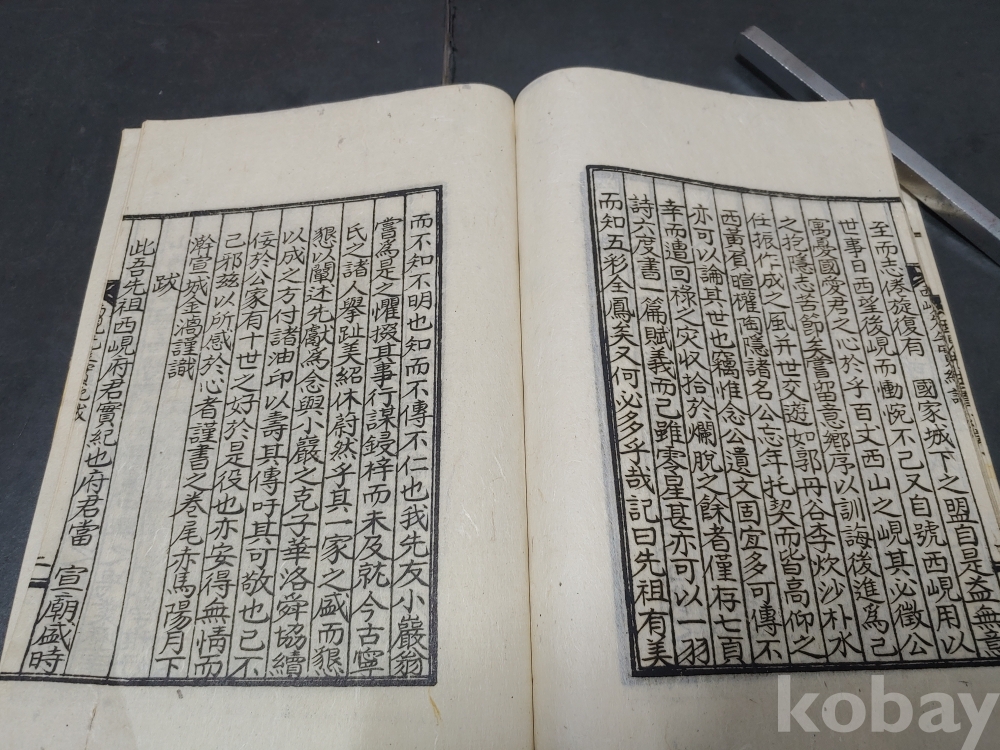 至而志倦旋復有 國家城下之盟自是益無意
世事日西望後峴而慟惋不已又自號西峴用以
寓憂國愛君之心於乎百丈西山之峴其必徵公
之抱隱志苦節矣嘗留意鄉序以訓誨後進爲己
任振作成之風并世交遊如郭丹谷李炊沙朴水
西黃有暄權陶隱諸名公忘年托契而皆高仰之
亦可以論其世也竊惟念公瀆文固宜多可傳不
幸而遭回祿之灾收拾於爛脫之餘者僅存七頁
詩六度書一篇賦義而已雖零星甚亦可以一羽
而知五彩全鳳矣又何必多乎哉記曰先祖有美
而不知不明也知而不傳不仁也我先友小巖翁
嘗爲是之懼掇其事行謀鋟梓而未及就今古寧
氏之諸人擧趾美紹休蔚然乎其一家之盛而懇
懇以闡述先猷爲念與小巖之克子華洛舜協續
以成之方付諸油印以壽其傳吁其可敬也已不
佞於公家有十世之好於是役也亦安得無情而
已邪玆以所感於心者謹書之卷尾赤馬陽月下
澣宣城金潙謹識
跋
此吾先祖西峴府君實紀也府君當 宣廟盛時
二
kobay